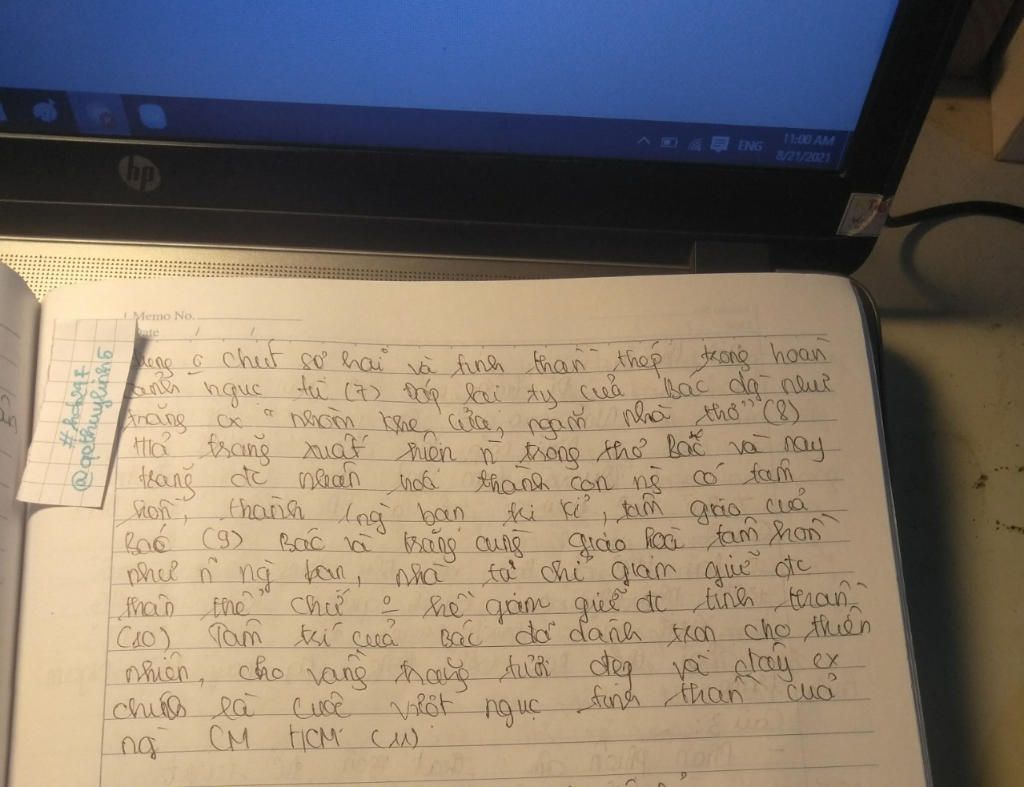 ENG 11:00 AM
8/21/2021
hp
Memo No.
Date / /
#hoha94
@ngothuylinh5
chút sợ hãi và tinh thần thép trong hoàn
cảnh ngục tù (7) Đáp lại ty của Bác dg như
trăng cx "nhòm khe cửa, ngắm nhà thơ" (8)
trăng xuất hiện n trong thơ Bác và nay
trăng đc nhân hoá thành con ng có tâm
hồn, thành 1 ng bạn tri kỉ, tâm giao của
Bác (9) Bác và trăng cùng giao hoà tâm hồn
như n ng bạn, nhà tù chỉ giam giữ đc
thân thể chứ o hề giam giữ đc tinh thần
(10) Tâm trí của Bác đã dành trọn cho thiên
nhiên, cho vầng trăng tươi đẹp và đây cx
chính là cuộc vượt ngục tinh thần của
ng CM HCM (11)